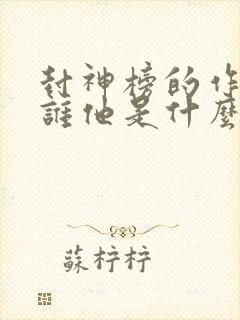 封神榜的作
誰他是什麼
蘇梓梓